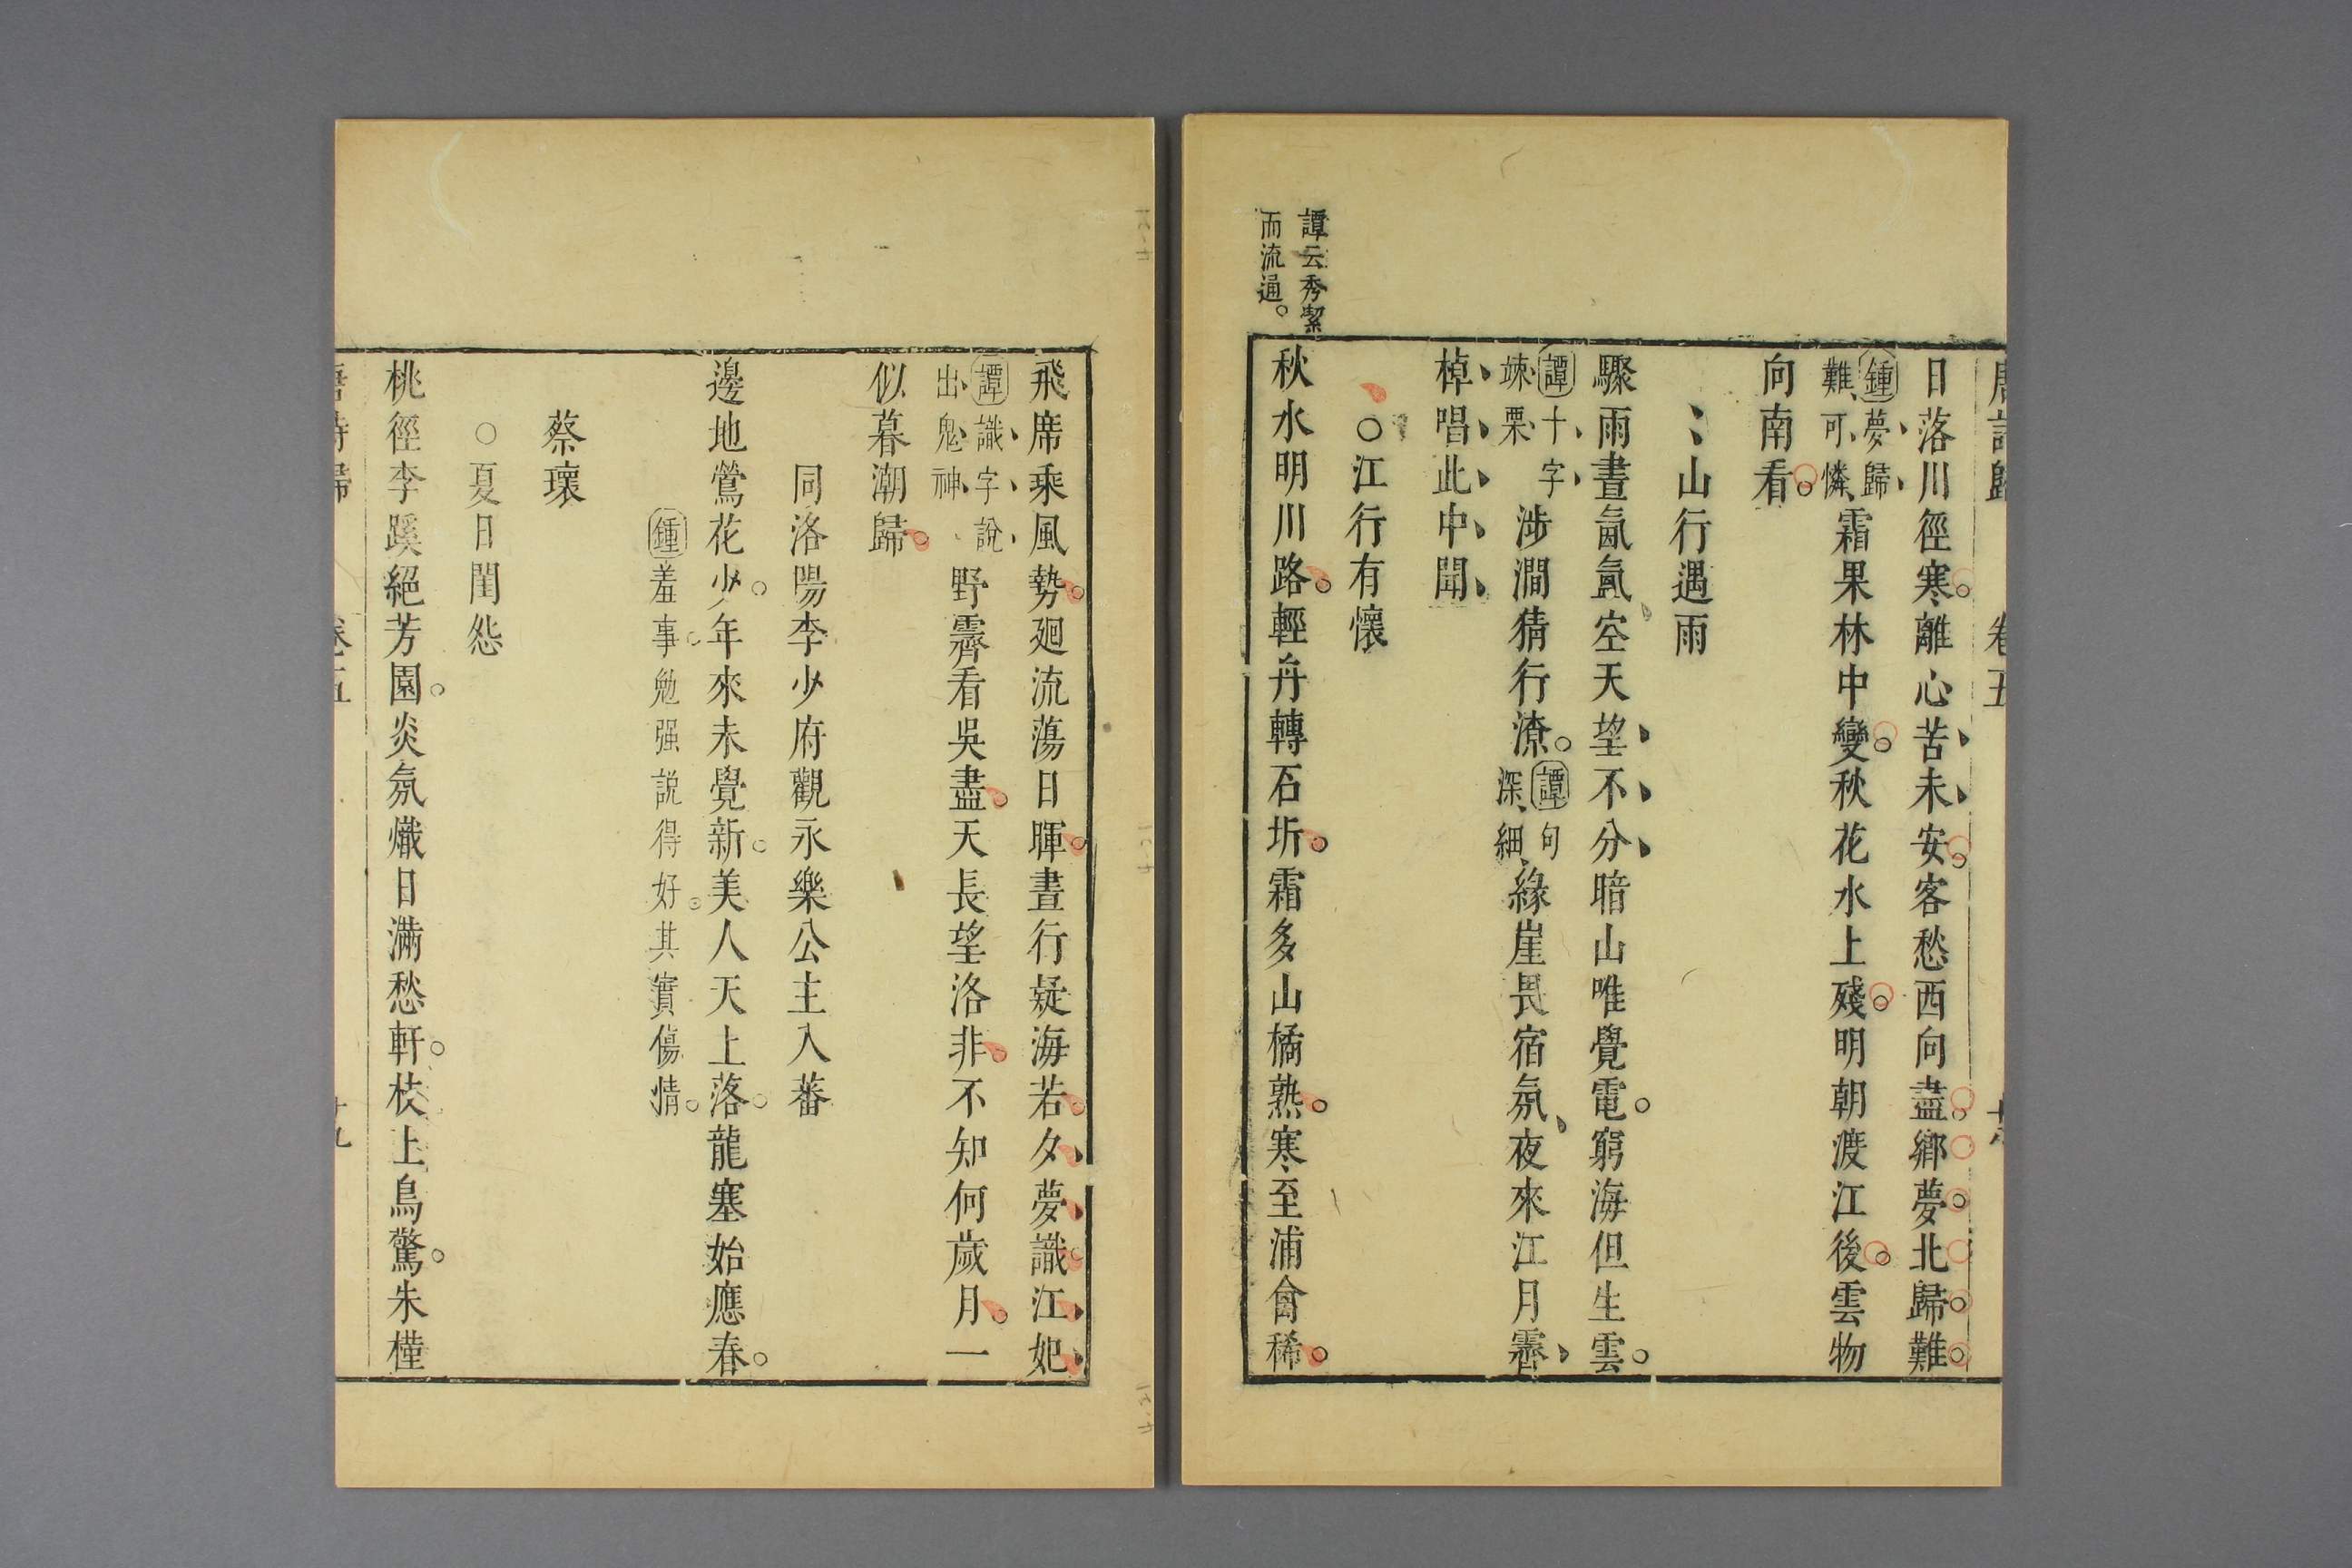 唐詩歸 卷五
日落川徑寒。離心苦未安。客愁西向盡。鄉夢北歸難
鍾夢歸
難可憐
霜果林中變。秋花水上殘。明朝渡江後。雲物
向南看。
山行遇雨
驟雨晝氤氳空天望不分暗山唯覺電。窮海但生雲。
譚十字
竦栗
涉澗猜行潦。
譚句
深細
緣崖畏宿氛夜來江月霽
棹唱此中聞
○江行有懷
譚云秀絜
而流通。
秋水明川路。輕舟轉石圻。霜多山橘熟。寒至浦禽稀。
飛席乘風勢。廻流蕩日暉。晝行疑海若。夕夢識江妃
譚識字說
出鬼神
野霽看吳盡。天長望洛非。不知何歲月。一
似暮潮歸。
同洛陽李少府觀永樂公主入蕃
邊地鶯花少。年來未覺新。美人天上落。龍塞始應春。
鍾羞事。勉强說得好。其實傷情。
蔡瓌
○夏日閨怨
桃徑李蹊絕芳園。炎氛熾日滿愁軒。枝上鳥驚。朱槿
唐詩歸 卷五 十九